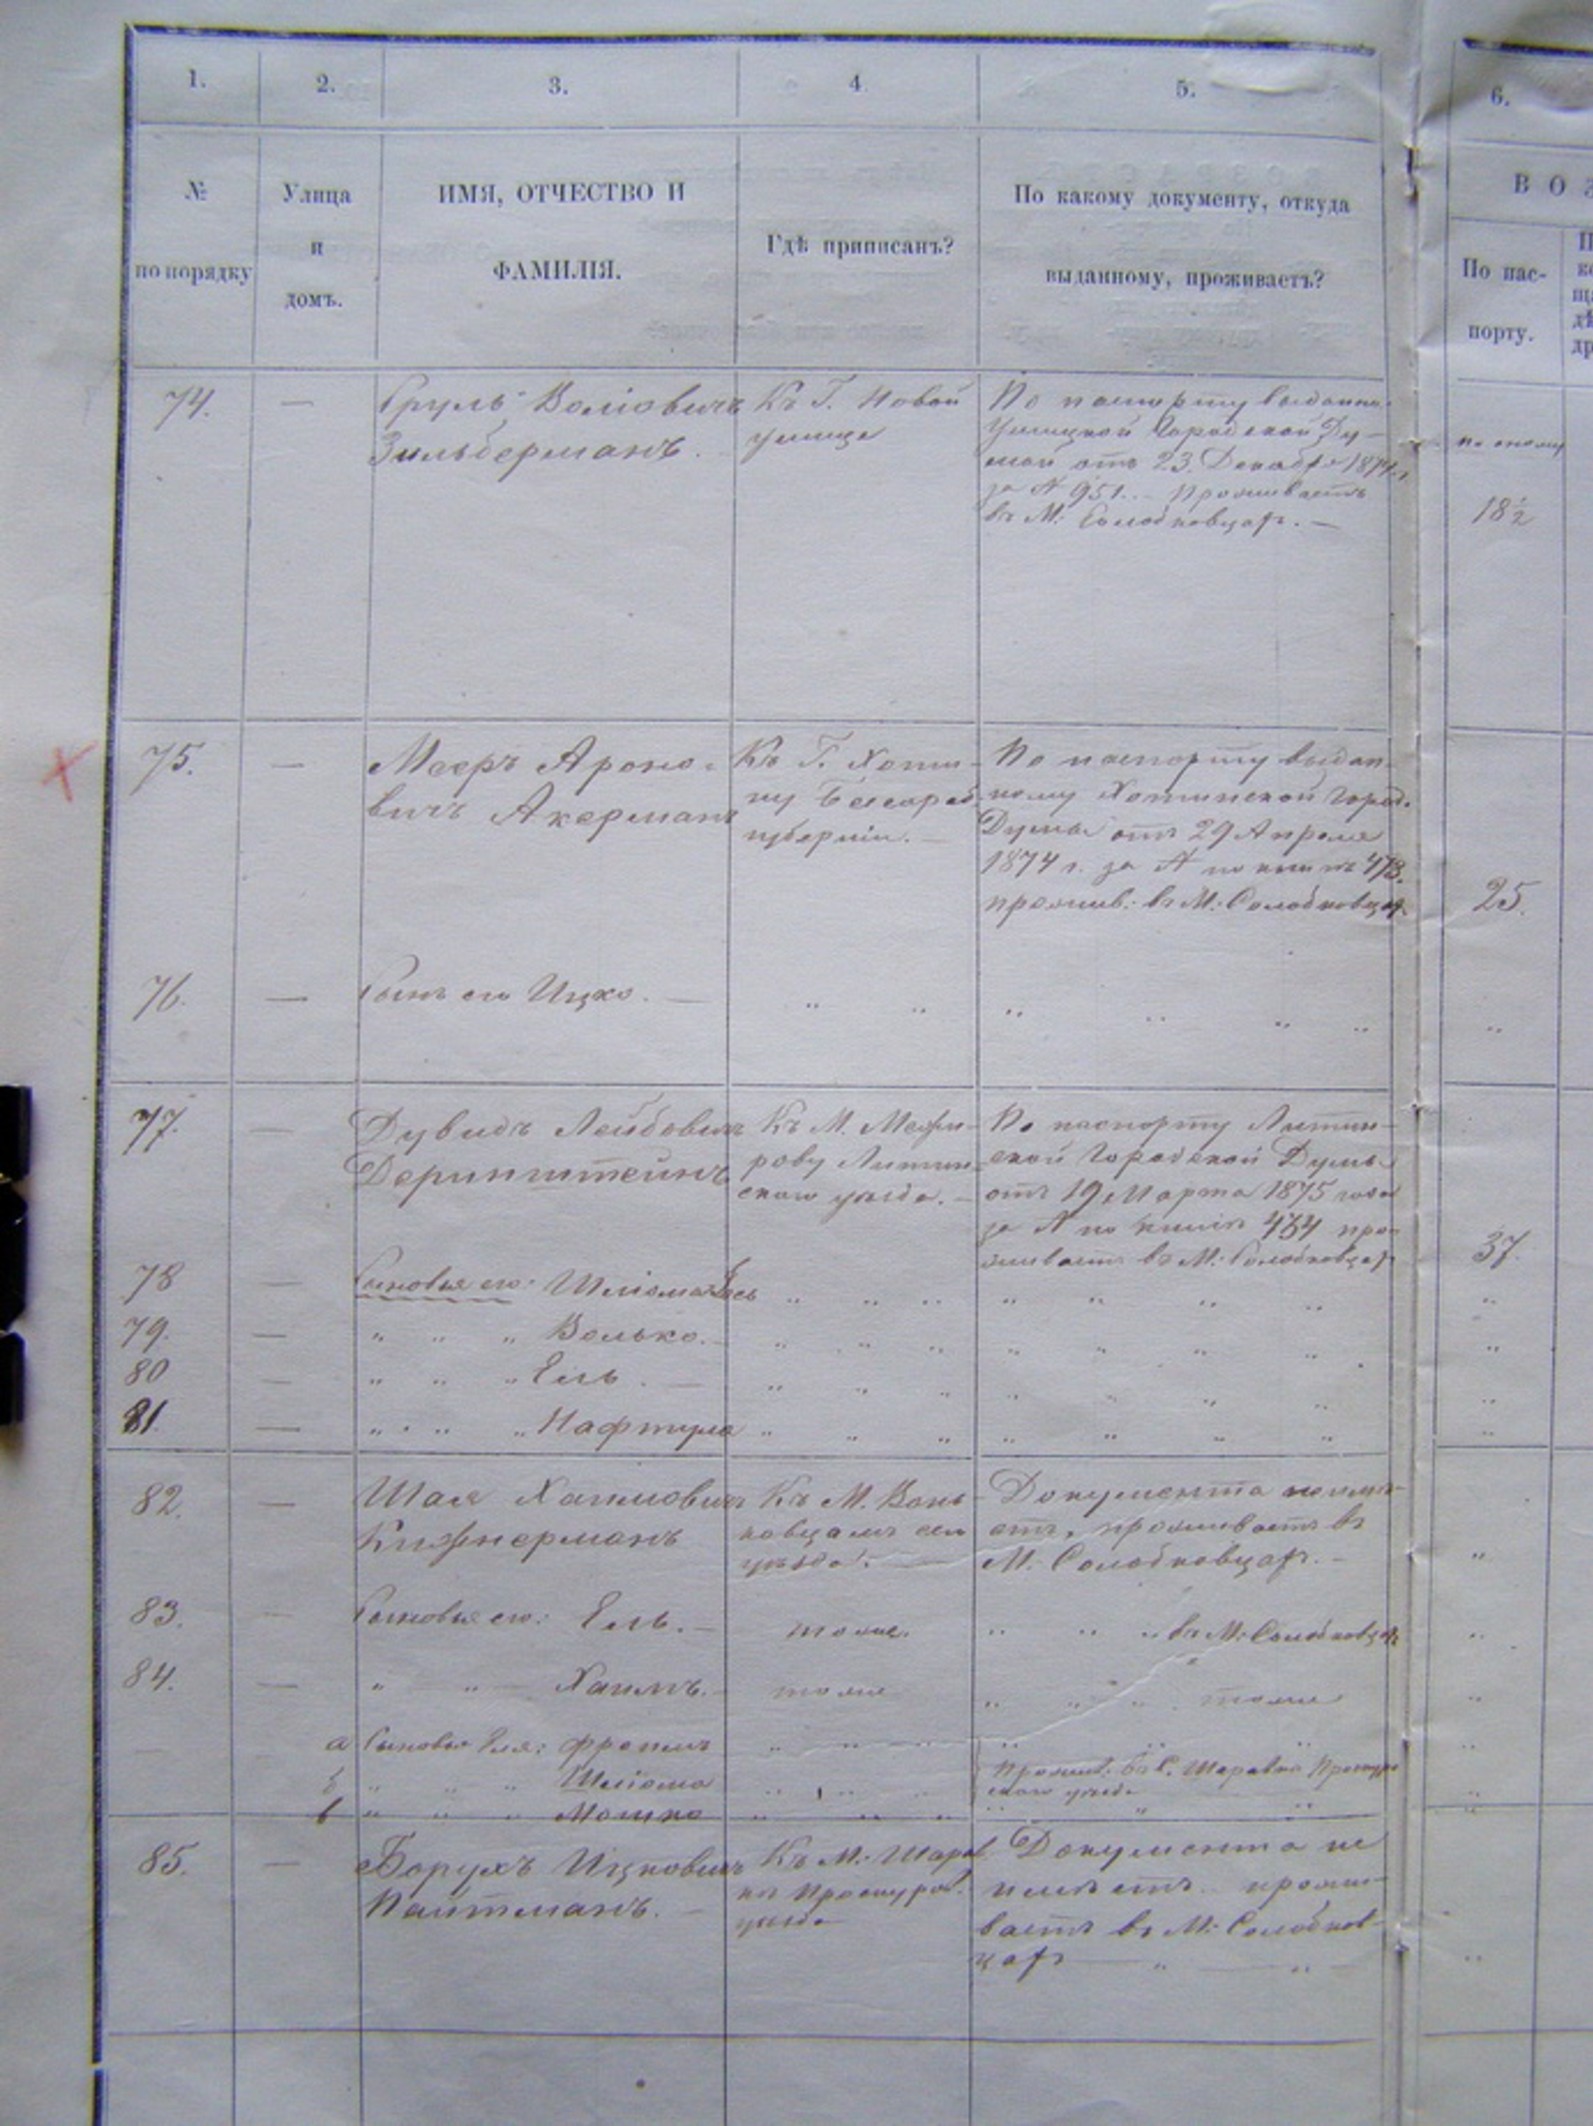 1. 2. 3. 4. 5. 6.
№
по порядку
Улица
и
домъ.
ИМЯ, ОТЧЕСТВО И
ФАМИЛІЯ.
Гдѣ приписанъ?
По какому документу, откуда
выданному, проживаетъ?
ВОЗ
По пас-
порту.
74. —
Сруль Волiовичъ
Зильберманъ.
Къ Г. Новой
ушице
По паспорту выданно
Ушицкой Городской Ду-
мой отъ 23 Декабря 1874 г.
за № 951. — Проживаетъ
въ М: Солобковцахъ. —
по оному
18½
75. —
Мееръ Ароно-
вичъ Акерманъ
Къ Г. Хоти-
ну Бессараб.
губерніи. —
По паспорту выдан-
ному Хотинской Город.
Думы отъ 29 Апреля
1874 г. за № по книгѣ 473.
прожив: въ М: Солобковцах
25.
76. —
Сынъ его Ицко. —
" "
" " " "
"
77. —
Дувидъ Лейбовичъ
Деринштейнъ
Къ М. Межи-
рову Литин-
скаго уѣзда. —
По паспорту Литин-
ской Городской Думы
отъ 19 Марта 1875 года
за № по книгѣ 434 про-
живаетъ въ М: Солобковцах
37.
78 — Сыновья его: Шліома " " " " " " " "
79. — " " " Волько. — " " " " " " " "
80 — " " " Ель. — " " " " " " " "
81. — " " " Нафтула " " " " " " " "
82. —
Шая Хаимовичъ
Кижнерманъ
Къ М. Вонь-
ковцамъ сего
уѣзда. —
Документа неимѣ-
етъ, проживаетъ въ
М: Солобковцахъ. —
"
83. — Сыновья его: Ель. — тоже. " " " въ М: Солобковцах "
84. — " " — Хаимъ. — тоже " " " тоже "
а Сыновья Еля: Фроимъ " " " " " "
б " " " Шліома " " "
Прожив. въ С. Шаровка Проскуро
скаго уѣзда "
в " " " Мошко " " " " " " "
85. —
Борухъ Ицковичъ
Пайтманъ. —
Къ М: Шаров
кѣ Проскуров.
уѣзда
Документа не
имѣетъ прожи-
ваетъ въ М: Солобков-
цахъ — " — " —
"